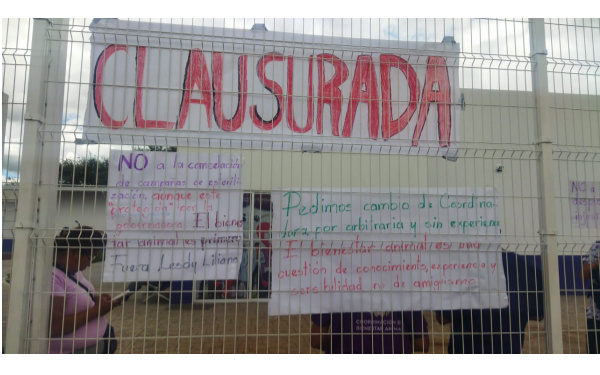 CLAUSURADA
NO a la cancelación
de campañas de esterili
zación, aunque este
"protegido" por la
El bienes
tar animal es primero,
Fuera Lesdy Liliana
Pedimos cambio de Coordina-
dora, por arbitraria y sin experiencia,
El bienestar animal es una
cuestión de conocimiento, experiencia y
sensibilidad no de amiguismo
COORDINACIÓN DE
BIENESTAR ANIMAL
NO a